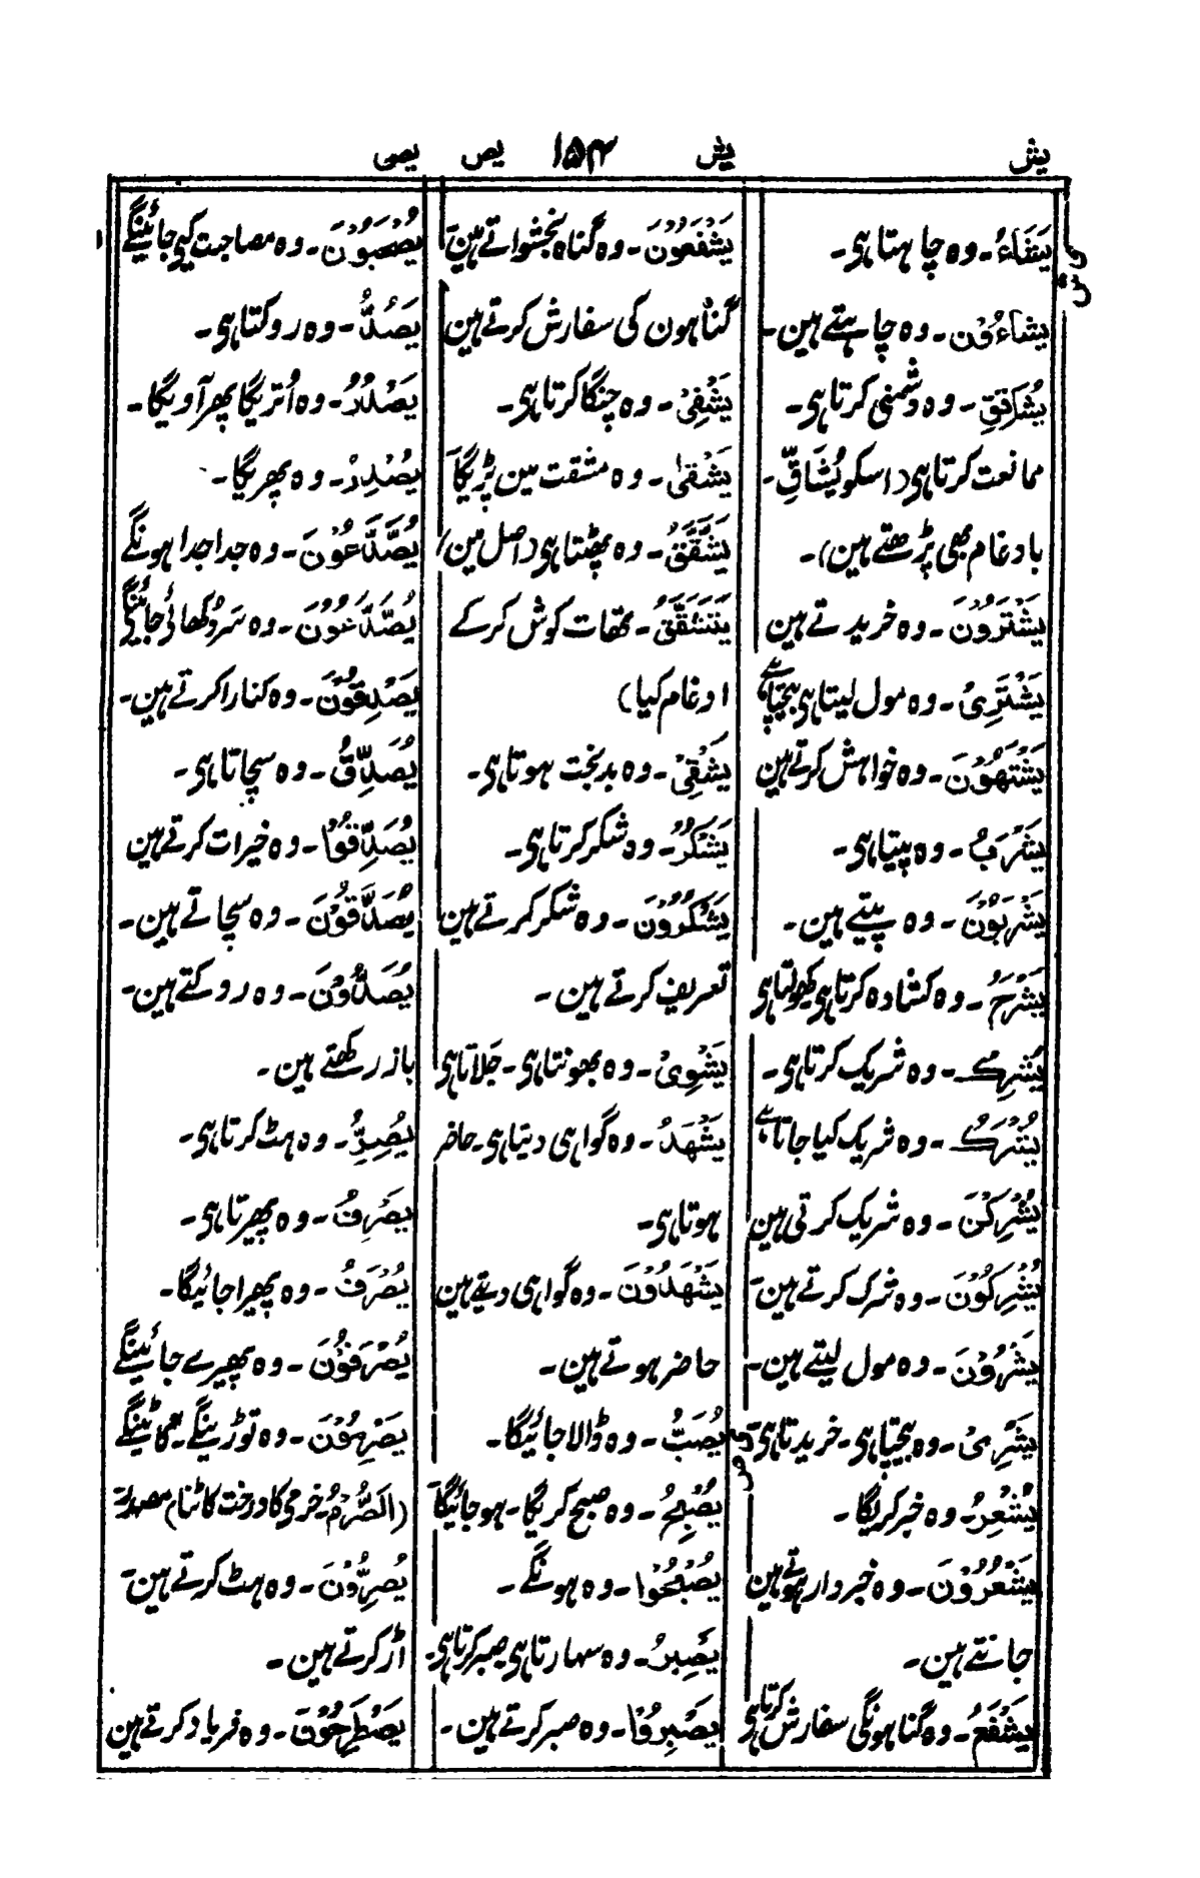 یش یش ۱۵۴ یص یص
یَشَاءُ۔ وہ چاہتا ہی۔
یشاءُوْن۔ وہ چاہتے ہین۔
یُشَاقِقِ۔ وہ دشمنی کرتا ہی۔
ممانعت کرتا ہی (اسکو یُشَاقِّ۔
بادغام بھی پڑھتے ہین)۔
یَشْتَرُوْنَ۔ وہ خریدتے ہین
یَشْتَرِیْ۔ وہ مول لیتا ہی بیچتا ہے
یَشْتَهُوْنَ۔ وہ خواہش کرتے ہین
یَشْرَبُ۔ وہ پیتا ہی۔
یَشْرَبُوْنَ۔ وہ پیتے ہین۔
یَشْرَحُ۔ وہ کشادہ کرتا ہی کھولتا ہی
یُشْرِكْ۔ وہ شریک کرتا ہی۔
یُشْرَكْ۔ وہ شریک کیا جاتا ہے
یُشْرِكْنَ۔ وہ شریک کرتی ہین
یُشْرِكُوْنَ۔ وہ شرک کرتے ہین۔
یَشْرُوْنَ۔ وہ مول لیتے ہین۔
یَشْرِیْ۔ وہ بیچتا ہی۔ خریدتا ہی۔
یُشْعِرُ۔ وہ خبر کریگا۔
یَشْعُرُوْنَ۔ وہ خبردار ہوتے ہین
جانتے ہین۔
یَشْفَعُ۔ وہ گناہونکی سفارش کرتا ہی
یَشْفَعُوْنَ۔ وہ گناہ بخشواتے ہین۔
گناہون کی سفارش کرتے ہین
یَشْفِیْ۔ وہ چنگا کرتا ہی۔
یَشْقٰی۔ وہ مشقت مین پڑیگا
یَشَّقَّقُ۔ وہ پھٹتا ہی (اصل مین
یَتَشَقَّقُ۔ تھا ت کو ش کر کے
ادغام کیا)
یَشْقِیْ۔ وہ بدبخت ہوتا ہی۔
یَشْكُرُ۔ وہ شکر کرتا ہی۔
یَشْكُرُوْنَ۔ وہ شکر کرتے ہین
تعریف کرتے ہین۔
یَشْوِیْ۔ وہ بھونتا ہی۔ جلاتا ہی
یَشْهَدُ۔ وہ گواہی دیتا ہی۔ حاضر
ہوتا ہی۔
یَشْهَدُوْنَ۔ وہ گواہی دیتے ہین
حاضر ہوتے ہین۔
یُصَبُّ۔ وہ ڈالا جائیگا۔
یُصْبِحُ۔ وہ صبح کریگا۔ ہو جائیگا
یُصْبِحُوْا۔ وہ ہونگے۔
یَصْبِرُ۔ وہ سہارتا ہی صبر کرتا ہی۔
یَصْبِرُوْا۔ وہ صبر کرتے ہین۔
یُصْحَبُوْنَ۔ وہ مصاحبت کیے جائینگے
یَصُدُّ۔ وہ روکتا ہی۔
یَصْدُرُ۔ وہ اُتریگا پھر آویگا۔
یُصْدِرْ۔ وہ پھریگا۔
یُصَّدَّعُوْنَ۔ وہ جدا جدا ہونگے
یُصَّدَّعُوْنَ۔ وہ سر دکھائے جائینگے
یَصْدِفُوْنَ۔ وہ کنارا کرتے ہین۔
یُصَدِّقُ۔ وہ سچاتا ہی۔
یُصَدِّقُوْا۔ وہ خیرات کرتے ہین
یُصَدِّقُوْنَ۔ وہ سچاتے ہین۔
یَصُدُّوْنَ۔ وہ روکتے ہین۔
باز رکھتے ہین۔
یُصِرُّ۔ وہ ہٹ کرتا ہی۔
یَصْرِفُ۔ وہ پھیرتا ہی۔
یُصْرَفُ۔ وہ پھیرا جائیگا۔
یُصْرَفُوْنَ۔ وہ پھیرے جائینگے
یَصْرِمُوْنَ۔ وہ توڑینگے۔ کاٹینگے
(اَلصَّرْمُ۔ خرمی کا درخت کاٹنا مصدر
یُصِرُّوْنَ۔ وہ ہٹ کرتے ہین۔
اڑ کرتے ہین۔
یَصْطَرِخُوْنَ۔ وہ فریاد کرتے ہین